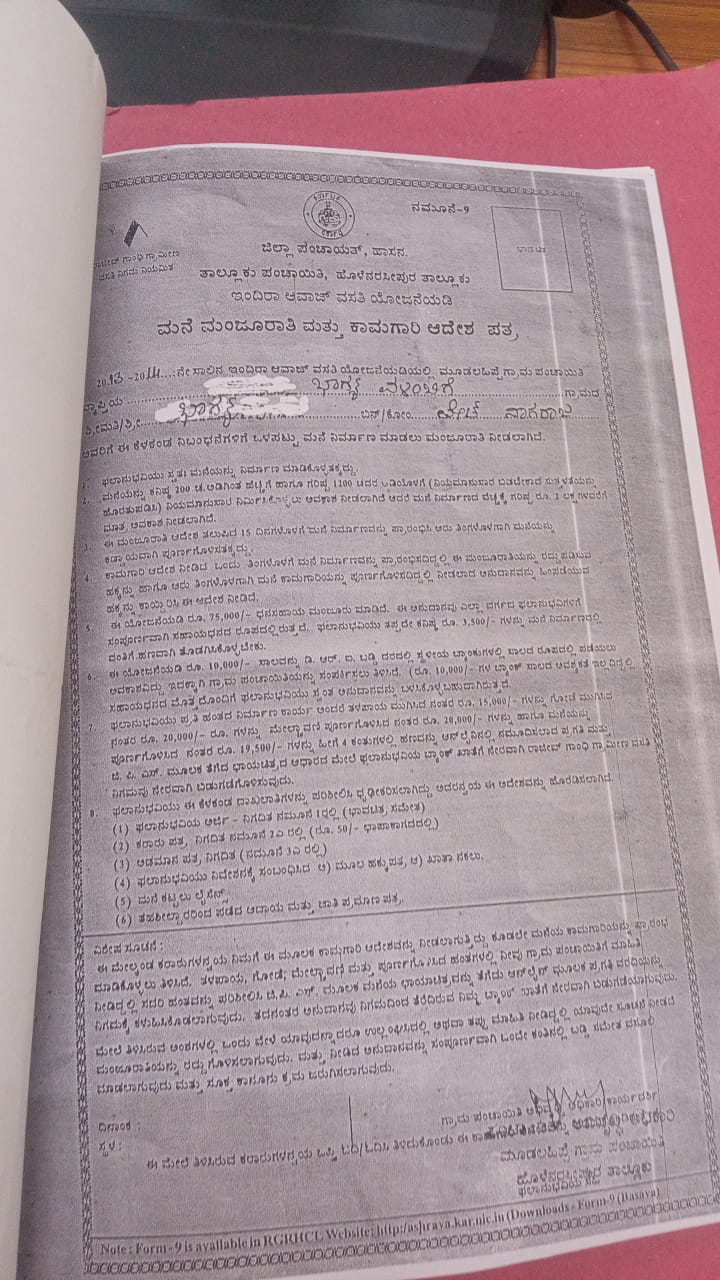 ನಮೂನೆ-9
ಭಾವಚಿತ್ರ
ರಾಜೀವ್ ಗಾಂಧಿ ಗ್ರಾಮೀಣ
ವಸತಿ ನಿಗಮ ನಿಯಮಿತ
ಜಿಲ್ಲಾ ಪಂಚಾಯತ್, ಹಾಸನ.
ತಾಲ್ಲೂಕು ಪಂಚಾಯಿತಿ, ಹೊಳೆನರಸೀಪುರ ತಾಲ್ಲೂಕು
ಇಂದಿರಾ ಆವಾಜ್ ವಸತಿ ಯೋಜನೆಯಡಿ
ಮನೆ ಮಂಜೂರಾತಿ ಮತ್ತು ಕಾಮಗಾರಿ ಆದೇಶ ಪತ್ರ
2013-2014....ನೇ ಸಾಲಿನ ಇಂದಿರಾ ಆವಾಜ್ ವಸತಿ ಯೋಜನೆಯಡಿಯಲ್ಲಿ ಮೂಡಲಹಿಪ್ಪೆ ಗ್ರಾಮ ಪಂಚಾಯಿತಿ
ವ್ಯಾಪ್ತಿಯ ಭಾಗ್ಯ ಗ್ರಾಮದ
ಶ್ರೀಮತಿ/ಶ್ರೀ ಭಾಗ್ಯ ಬಿನ್/ಕೋಂ ನಾಗರಾಜ
ಅವರಿಗೆ ಈ ಕೆಳಕಂಡ ನಿಬಂಧನೆಗಳಿಗೆ ಒಳಪಟ್ಟು ಮನೆ ನಿರ್ಮಾಣ ಮಾಡಲು ಮಂಜೂರಾತಿ ನೀಡಲಾಗಿದೆ.
1. ಫಲಾನುಭವಿಯು ಸ್ವತಃ ಮನೆಯನ್ನು ನಿರ್ಮಾಣ ಮಾಡಿಕೊಳ್ಳತಕ್ಕದ್ದು.
2. ಮನೆಯನ್ನು ಕನಿಷ್ಠ 200 ಚ.ಅಡಿಗಿಂತ ಹೆಚ್ಚಿಗೆ ಹಾಗೂ ಗರಿಷ್ಠ 1200 ಚದರ ಅಡಿಯೊಳಗೆ (ನಿಯಮಾನುಸಾರ ಬಿಡಬೇಕಾದ ಸುತ್ತಳತೆಯನ್ನು
ಹೊರತುಪಡಿಸಿ) ನಿಯಮಾನುಸಾರ ನಿರ್ಮಿಸಿಕೊಳ್ಳಲು ಅವಕಾಶ ನೀಡಲಾಗಿದೆ ಆದರೆ ಮನೆ ನಿರ್ಮಾಣದ ವೆಚ್ಚಕ್ಕೆ ಗರಿಷ್ಠ ರೂ. 2 ಲಕ್ಷಗಳವರೆಗೆ
ಮಾತ್ರ ಅವಕಾಶ ನೀಡಲಾಗಿದೆ.
3. ಈ ಮಂಜೂರಾತಿ ಆದೇಶ ತಲುಪಿದ 15 ದಿನಗಳೊಳಗೆ ಮನೆ ನಿರ್ಮಾಣವನ್ನು ಪ್ರಾರಂಭಿಸಿ ಆರು ತಿಂಗಳೊಳಗಾಗಿ ಮನೆಯನ್ನು
ಕಡ್ಡಾಯವಾಗಿ ಪೂರ್ಣಗೊಳಿಸತಕ್ಕದ್ದು.
4. ಕಾಮಗಾರಿ ಆದೇಶ ನೀಡಿದ ಒಂದು ತಿಂಗಳೊಳಗೆ ಮನೆ ನಿರ್ಮಾಣವನ್ನು ಪ್ರಾರಂಭಿಸದಿದ್ದಲ್ಲಿ ಈ ಮಂಜೂರಾತಿಯನ್ನು ರದ್ದುಪಡಿಸುವ
ಹಕ್ಕನ್ನು ಹಾಗೂ ಆರು ತಿಂಗಳೊಳಗಾಗಿ ಮನೆ ಕಾಮಗಾರಿಯನ್ನು ಪೂರ್ಣಗೊಳಿಸದಿದ್ದಲ್ಲಿ ನೀಡಲಾದ ಅನುದಾನವನ್ನು ಹಿಂಪಡೆಯುವ
ಹಕ್ಕನ್ನು ಕಾಯ್ದಿರಿಸಿ ಈ ಆದೇಶ ನೀಡಿದೆ.
5. ಈ ಯೋಜನೆಯಡಿ ರೂ. 75,000/- ಧನಸಹಾಯ ಮಂಜೂರು ಮಾಡಿದೆ. ಈ ಅನುದಾನವು ಎಲ್ಲಾ ವರ್ಗದ ಫಲಾನುಭವಿಗಳಿಗೆ
ಸಂಪೂರ್ಣವಾಗಿ ಸಹಾಯಧನದ ರೂಪದಲ್ಲಿರುತ್ತದೆ. ಫಲಾನುಭವಿಯು ತಪ್ಪದೇ ಕನಿಷ್ಠ ರೂ. 3,500/- ಗಳನ್ನು ಮನೆ ನಿರ್ಮಾಣದಲ್ಲಿ
ವಂತಿಗೆ ಹಣವಾಗಿ ತೊಡಗಿಸಿಕೊಳ್ಳಬೇಕು.
6. ಈ ಯೋಜನೆಯಡಿ ರೂ. 10,000/- ಸಾಲವನ್ನು ಡಿ. ಆರ್. ಐ. ಬಡ್ಡಿ ದರದಲ್ಲಿ ಸ್ಥಳೀಯ ಬ್ಯಾಂಕುಗಳಲ್ಲಿ ಸಾಲದ ರೂಪದಲ್ಲಿ ಪಡೆಯಲು
ಅವಕಾಶವಿದ್ದು ಇದಕ್ಕಾಗಿ ಗ್ರಾಮ ಪಂಚಾಯಿತಿಯನ್ನು ಸಂಪರ್ಕಿಸಲು ತಿಳಿಸಿದೆ. (ರೂ. 10,000/- ಗಳ ಬ್ಯಾಂಕ್ ಸಾಲದ ಅವಶ್ಯಕತೆ ಇಲ್ಲದಿದ್ದಲ್ಲಿ
ಸಹಾಯಧನದ ಮೊತ್ತದೊಂದಿಗೆ ಫಲಾನುಭವಿಯು ಸ್ವಂತ ಅನುದಾನವನ್ನು ಬಳಸಿಕೊಳ್ಳಬಹುದಾಗಿರುತ್ತದೆ.
7. ಫಲಾನುಭವಿಯು ಪ್ರತಿ ಹಂತದ ನಿರ್ಮಾಣ ಕಾರ್ಯ ಅಂದರೆ ತಳಪಾಯ ಮುಗಿಸಿದ ನಂತರ ರೂ. 15,000/- ಗಳನ್ನು ಗೋಡೆ ಮುಗಿಸಿದ
ನಂತರ ರೂ. 20,000/- ರೂ. ಗಳನ್ನು ಮೇಲ್ಛಾವಣಿ ಪೂರ್ಣಗೊಳಿಸಿದ ನಂತರ ರೂ. 20,000/- ಗಳನ್ನು ಹಾಗೂ ಮನೆಯನ್ನು
ಪೂರ್ಣಗೊಳಿಸಿದ ನಂತರ ರೂ. 19,500/- ಗಳನ್ನು ಹೀಗೆ 4 ಕಂತುಗಳಲ್ಲಿ ಹಣವನ್ನು ಆನ್‌ಲೈನಿನಲ್ಲಿ ನಮೂದಿಸಲಾದ ಪ್ರಗತಿ ಮತ್ತು
ಜಿ. ಪಿ. ಎಸ್. ಮೂಲಕ ತೆಗೆದ ಛಾಯಚಿತ್ರದ ಆಧಾರದ ಮೇಲೆ ಫಲಾನುಭವಿಯ ಬ್ಯಾಂಕ್ ಖಾತೆಗೆ ನೇರವಾಗಿ ರಾಜೀವ್ ಗಾಂಧಿ ಗ್ರಾಮೀಣ ವಸತಿ
ನಿಗಮವು ನೇರವಾಗಿ ಬಿಡುಗಡೆಗೊಳಿಸುವುದು.
8. ಫಲಾನುಭವಿಯು ಈ ಕೆಳಕಂಡ ದಾಖಲಾತಿಗಳನ್ನು ಪರಿಶೀಲಿಸಿ ಧೃಢೀಕರಿಸಲಾಗಿದ್ದು ಅದರನ್ವಯ ಈ ಆದೇಶವನ್ನು ಹೊರಡಿಸಲಾಗಿದೆ.
(1) ಫಲಾನುಭವಿಯ ಅರ್ಜಿ - ನಿಗದಿತ ನಮೂನೆ 1ರಲ್ಲಿ (ಭಾವಚಿತ್ರ ಸಮೇತ)
(2) ಕರಾರು ಪತ್ರ, ನಿಗದಿತ ನಮೂನೆ 2ಎ ರಲ್ಲಿ (ರೂ. 50/- ಛಾಪಾಕಾಗದದಲ್ಲಿ)
(3) ಅಡಮಾನ ಪತ್ರ, ನಿಗದಿತ (ನಮೂನೆ 3ಎ ರಲ್ಲಿ)
(4) ಫಲಾನುಭವಿಯು ನಿವೇಶನಕ್ಕೆ ಸಂಬಂಧಿಸಿದ ಅ) ಮೂಲ ಹಕ್ಕುಪತ್ರ, ಆ) ಖಾತಾ ನಕಲು.
(5) ಮನೆ ಕಟ್ಟಲು ಲೈಸೆನ್ಸ್
(6) ತಹಶೀಲ್ದಾರರಿಂದ ಪಡೆದ ಆದಾಯ ಮತ್ತು ಜಾತಿ ಪ್ರಮಾಣ ಪತ್ರ.
ವಿಶೇಷ ಸೂಚನೆ :
ಈ ಮೇಲ್ಕಂಡ ಕರಾರುಗಳನ್ವಯ ನಿಮಗೆ ಈ ಮೂಲಕ ಕಾಮಗಾರಿ ಆದೇಶವನ್ನು ನೀಡಲಾಗುತ್ತಿದ್ದು ಕೂಡಲೇ ಮನೆಯ ಕಾಮಗಾರಿಯನ್ನು ಪ್ರಾರಂಭ
ಮಾಡಿಕೊಳ್ಳಲು ತಿಳಿಸಿದೆ. ತಳಪಾಯ, ಗೋಡೆ, ಮೇಲ್ಛಾವಣಿ ಮತ್ತು ಪೂರ್ಣಗೊಳಿಸಿದ ಹಂತಗಳಲ್ಲಿ ನೀವು ಗ್ರಾಮ ಪಂಚಾಯಿತಿಗೆ ಮಾಹಿತಿ
ನೀಡಿದ್ದಲ್ಲಿ ಸದರಿ ಹಂತದನ್ನು ಪರಿಶೀಲಿಸಿ ಜಿ.ಪಿ. ಎಸ್. ಮೂಲಕ ಮನೆಯ ಛಾಯಾಚಿತ್ರವನ್ನು ತೆಗೆದು ಆನ್‌ಲೈನ್ ಮೂಲಕ ಪ್ರಗತಿ ವರದಿಯನ್ನು
ನಿಗಮಕ್ಕೆ ಕಳುಹಿಸಿಕೊಡಲಾಗುವುದು. ತದನಂತರ ಅನುದಾನವು ನಿಗಮದಿಂದ ತೆರೆದಿರುವ ನಿಮ್ಮ ಬ್ಯಾಂಕ್ ಖಾತೆಗೆ ನೇರವಾಗಿ ಬಿಡುಗಡೆಯಾಗುವುದು.
ಮೇಲೆ ತಿಳಿಸಿರುವ ಅಂಶಗಳಲ್ಲಿ ಒಂದು ವೇಳೆ ಯಾವುದನ್ನಾದರೂ ಉಲ್ಲಂಘಿಸಿದಲ್ಲಿ ಅಥವಾ ತಪ್ಪು ಮಾಹಿತಿ ನೀಡಿದ್ದಲ್ಲಿ ಯಾವುದೇ ಸೂಚನೆ ನೀಡದೆ
ಮಂಜೂರಾತಿಯನ್ನು ರದ್ದುಗೊಳಿಸಲಾಗುವುದು. ಮತ್ತು ನೀಡಿದ ಅನುದಾನವನ್ನು ಸಂಪೂರ್ಣವಾಗಿ ಒಂದೇ ಕಂತಿನಲ್ಲಿ ಬಡ್ಡಿ ಸಮೇತ ವಸೂಲಿ
ಮಾಡಲಾಗುವುದು ಮತ್ತು ಸೂಕ್ತ ಕಾನೂನು ಕ್ರಮ ಜರುಗಿಸಲಾಗುವುದು.
ದಿನಾಂಕ :
ಸ್ಥಳ :
ಗ್ರಾಮ ಪಂಚಾಯಿತಿ
ಈ ಮೇಲೆ ತಿಳಿಸಿರುವ ಕರಾರುಗಳನ್ವಯ ಒಪ್ಪಿ ಓದಿ/ಓದಿಸಿ ತಿಳಿದುಕೊಂಡು ಈ
ಮೂಡಲಹಿಪ್ಪೆ ಗ್ರಾಮ ಪಂಚಾಯಿತಿ
ಹೊಳೆನರಸೀಪುರ ತಾಲ್ಲೂಕು
Note : Form - 9 is available in RGRHCL Website: http:/ashraya.kar.nic.in (Downloads - Form-9 (Basava)